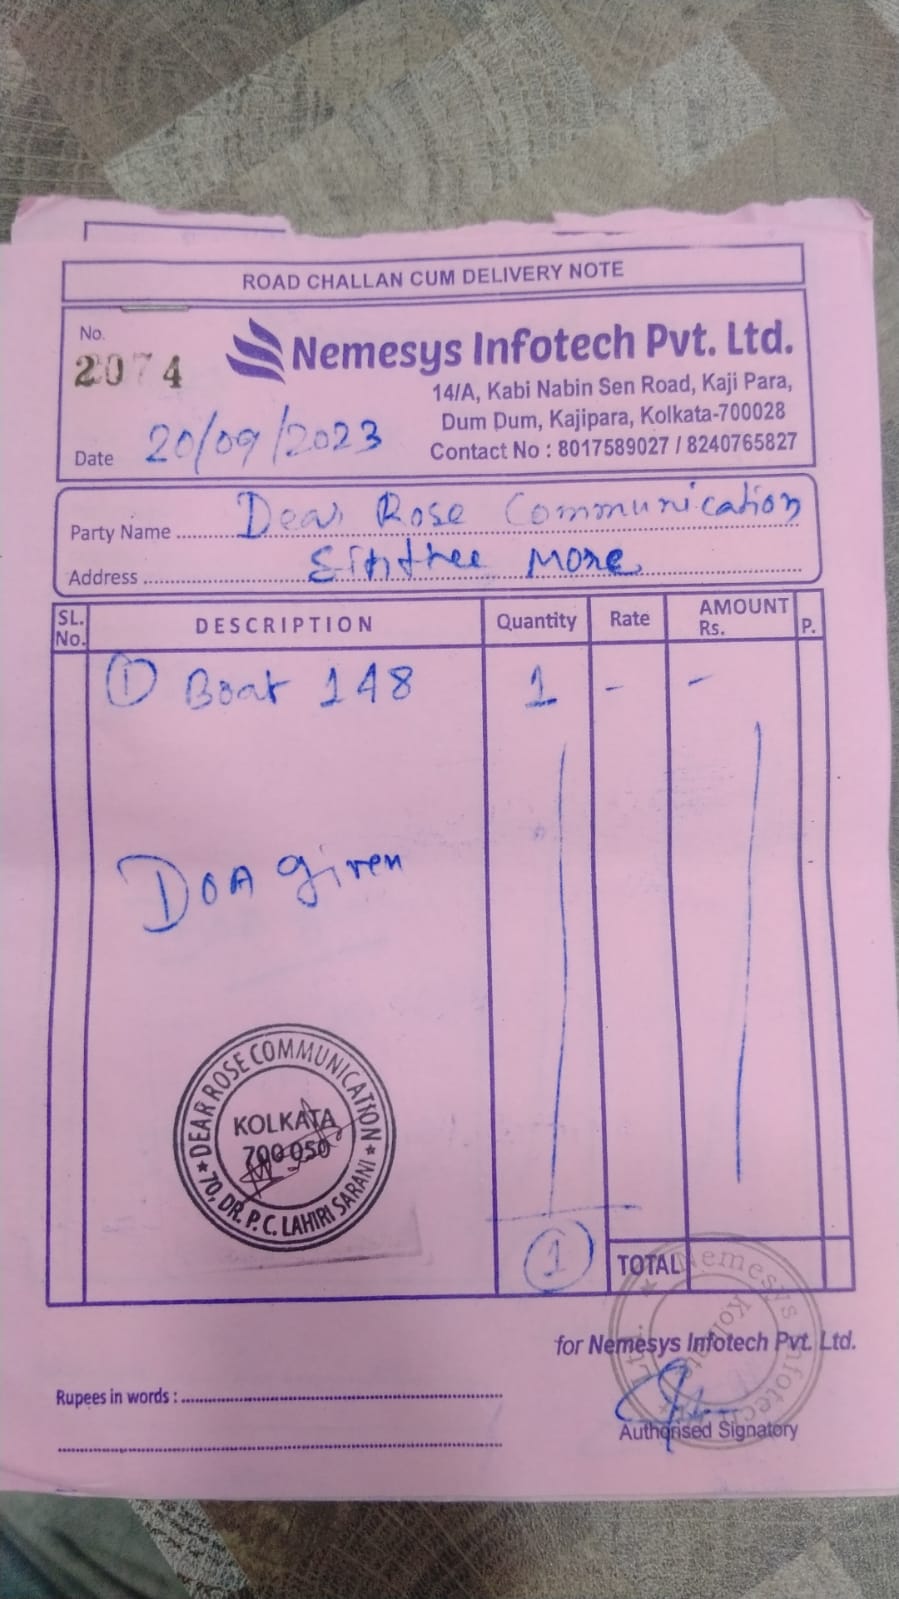 ROAD CHALLAN CUM DELIVERY NOTE
No.
2074
Nemesys Infotech Pvt. Ltd.
14/A, Kabi Nabin Sen Road, Kaji Para,
Dum Dum, Kajipara, Kolkata-700028
Contact No : 8017589027 / 8240765827
Date 20/09/2023
Party Name Dear Rose Communication
Address Sinthee More
SL. No. DESCRIPTION Quantity Rate AMOUNT Rs. P.
① Boat 148 1 - -
DOA given
★ DEAR ROSE COMMUNICATION ★
KOLKATA
700 050
70, DR. P. C. LAHIRI SARANI
1
TOTAL
Nemesys Infotech Pvt. Ltd. ★
Kolkata
for Nemesys Infotech Pvt. Ltd.
Rupees in words :
Authorised Signatory